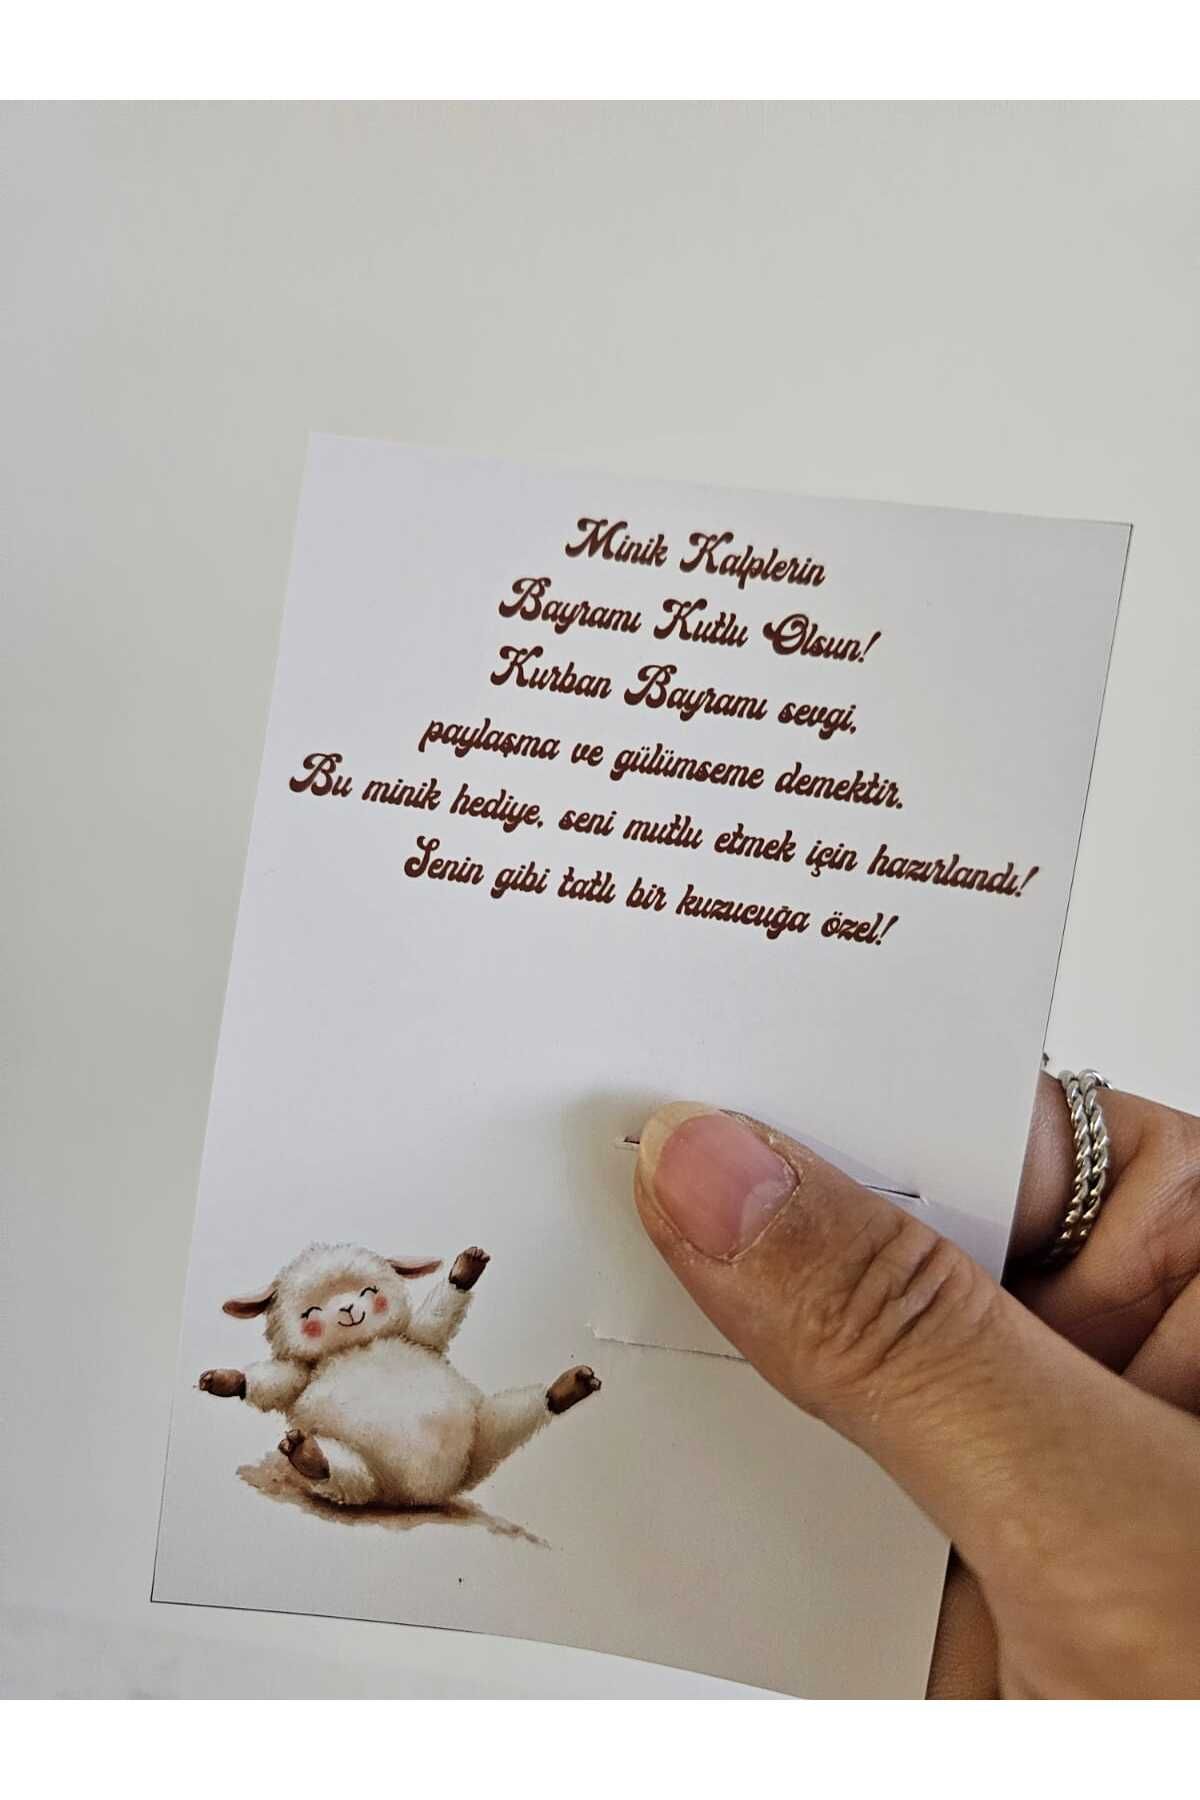 Minik Kalplerin
Bayramı Kutlu Olsun!
Kurban Bayramı sevgi,
paylaşma ve gülümseme demektir.
Bu minik hediye, seni mutlu etmek için hazırlandı!
Senin gibi tatlı bir kuzucuğa özel!